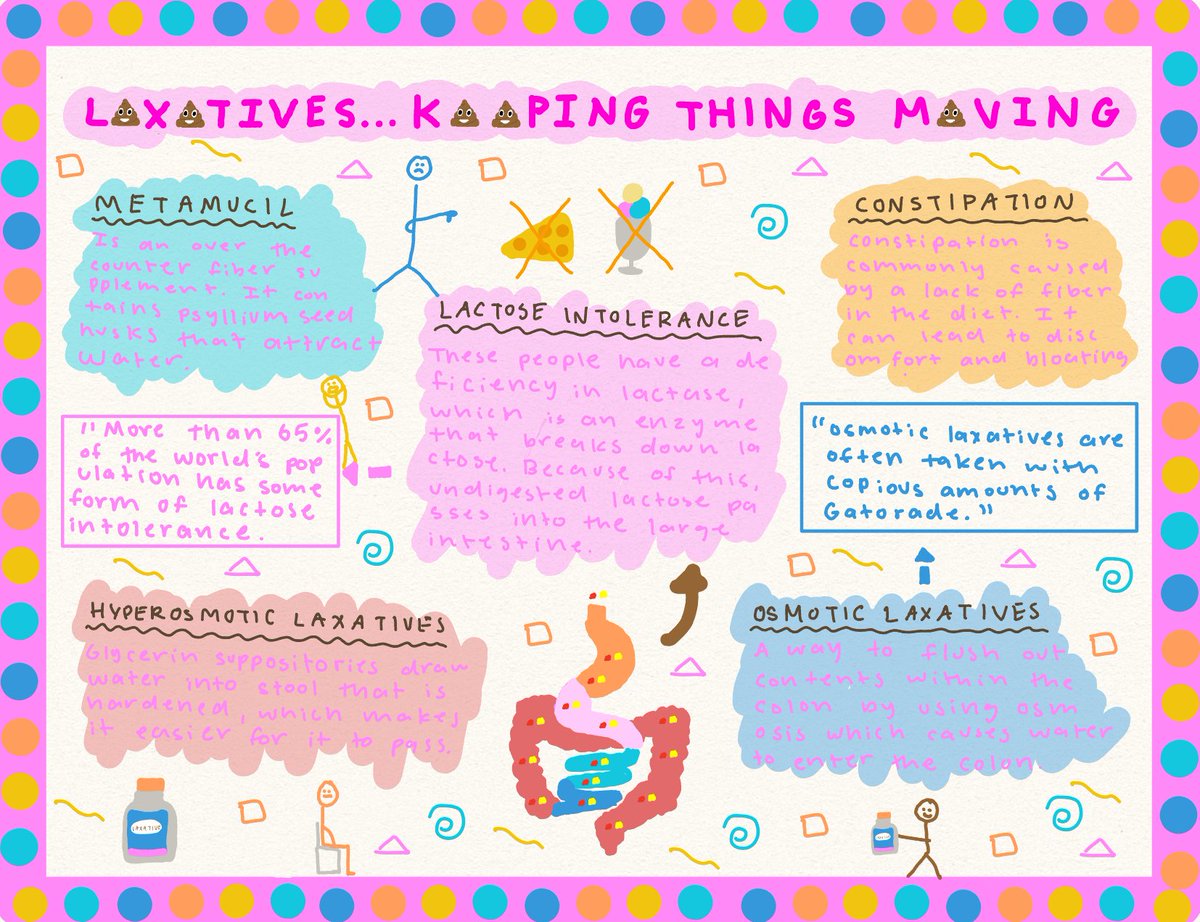 L💩X💩TIVES... K💩💩PING THINGS M💩VING
METAMUCIL
Is an over the
counter fiber su
pplement. It con
tains psyllium seed
husks that attract
water.
CONSTIPATION
constipation is
commonly caused
by a lack of fiber
in the diet. It
can lead to disc
omfort and bloating
LACTOSE INTOLERANCE
These people have a de
ficiency in lactase,
which is an enzyme
that breaks down la
ctose. Because of this,
undigested lactose pa
sses into the large
intestine.
"More than 65%
of the world's pop
ulation has some
form of lactose
intolerance.
"osmotic laxatives are
often taken with
copious amounts of
Gatorade."
HYPEROSMOTIC LAXATIVES
Glycerin suppositories draw
water into stool that is
hardened, which makes
it easier for it to pass.
OSMOTIC LAXATIVES
A way to flush out
contents within the
colon by using osm
osis which causes water
to enter the colon.
LAXATIVE